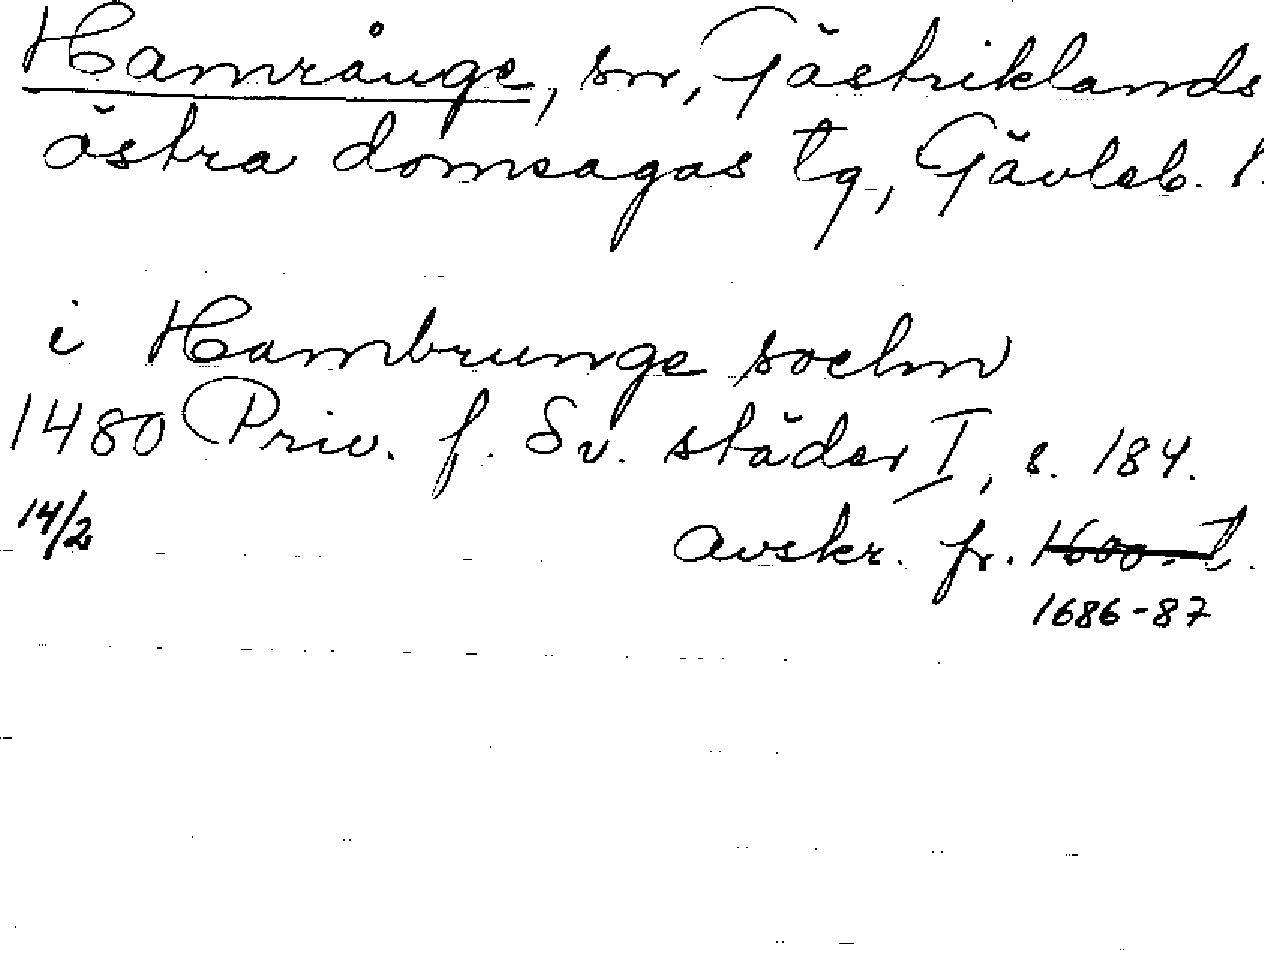 Hamrånge, sn, Gästriklands
östra domsagas tg, Gävleb. l.
i Hambrunge sochn
1480 Priv. f. Sv. städer I, s. 184.
14/2 avskr. fr. 1600-t.
1686-87